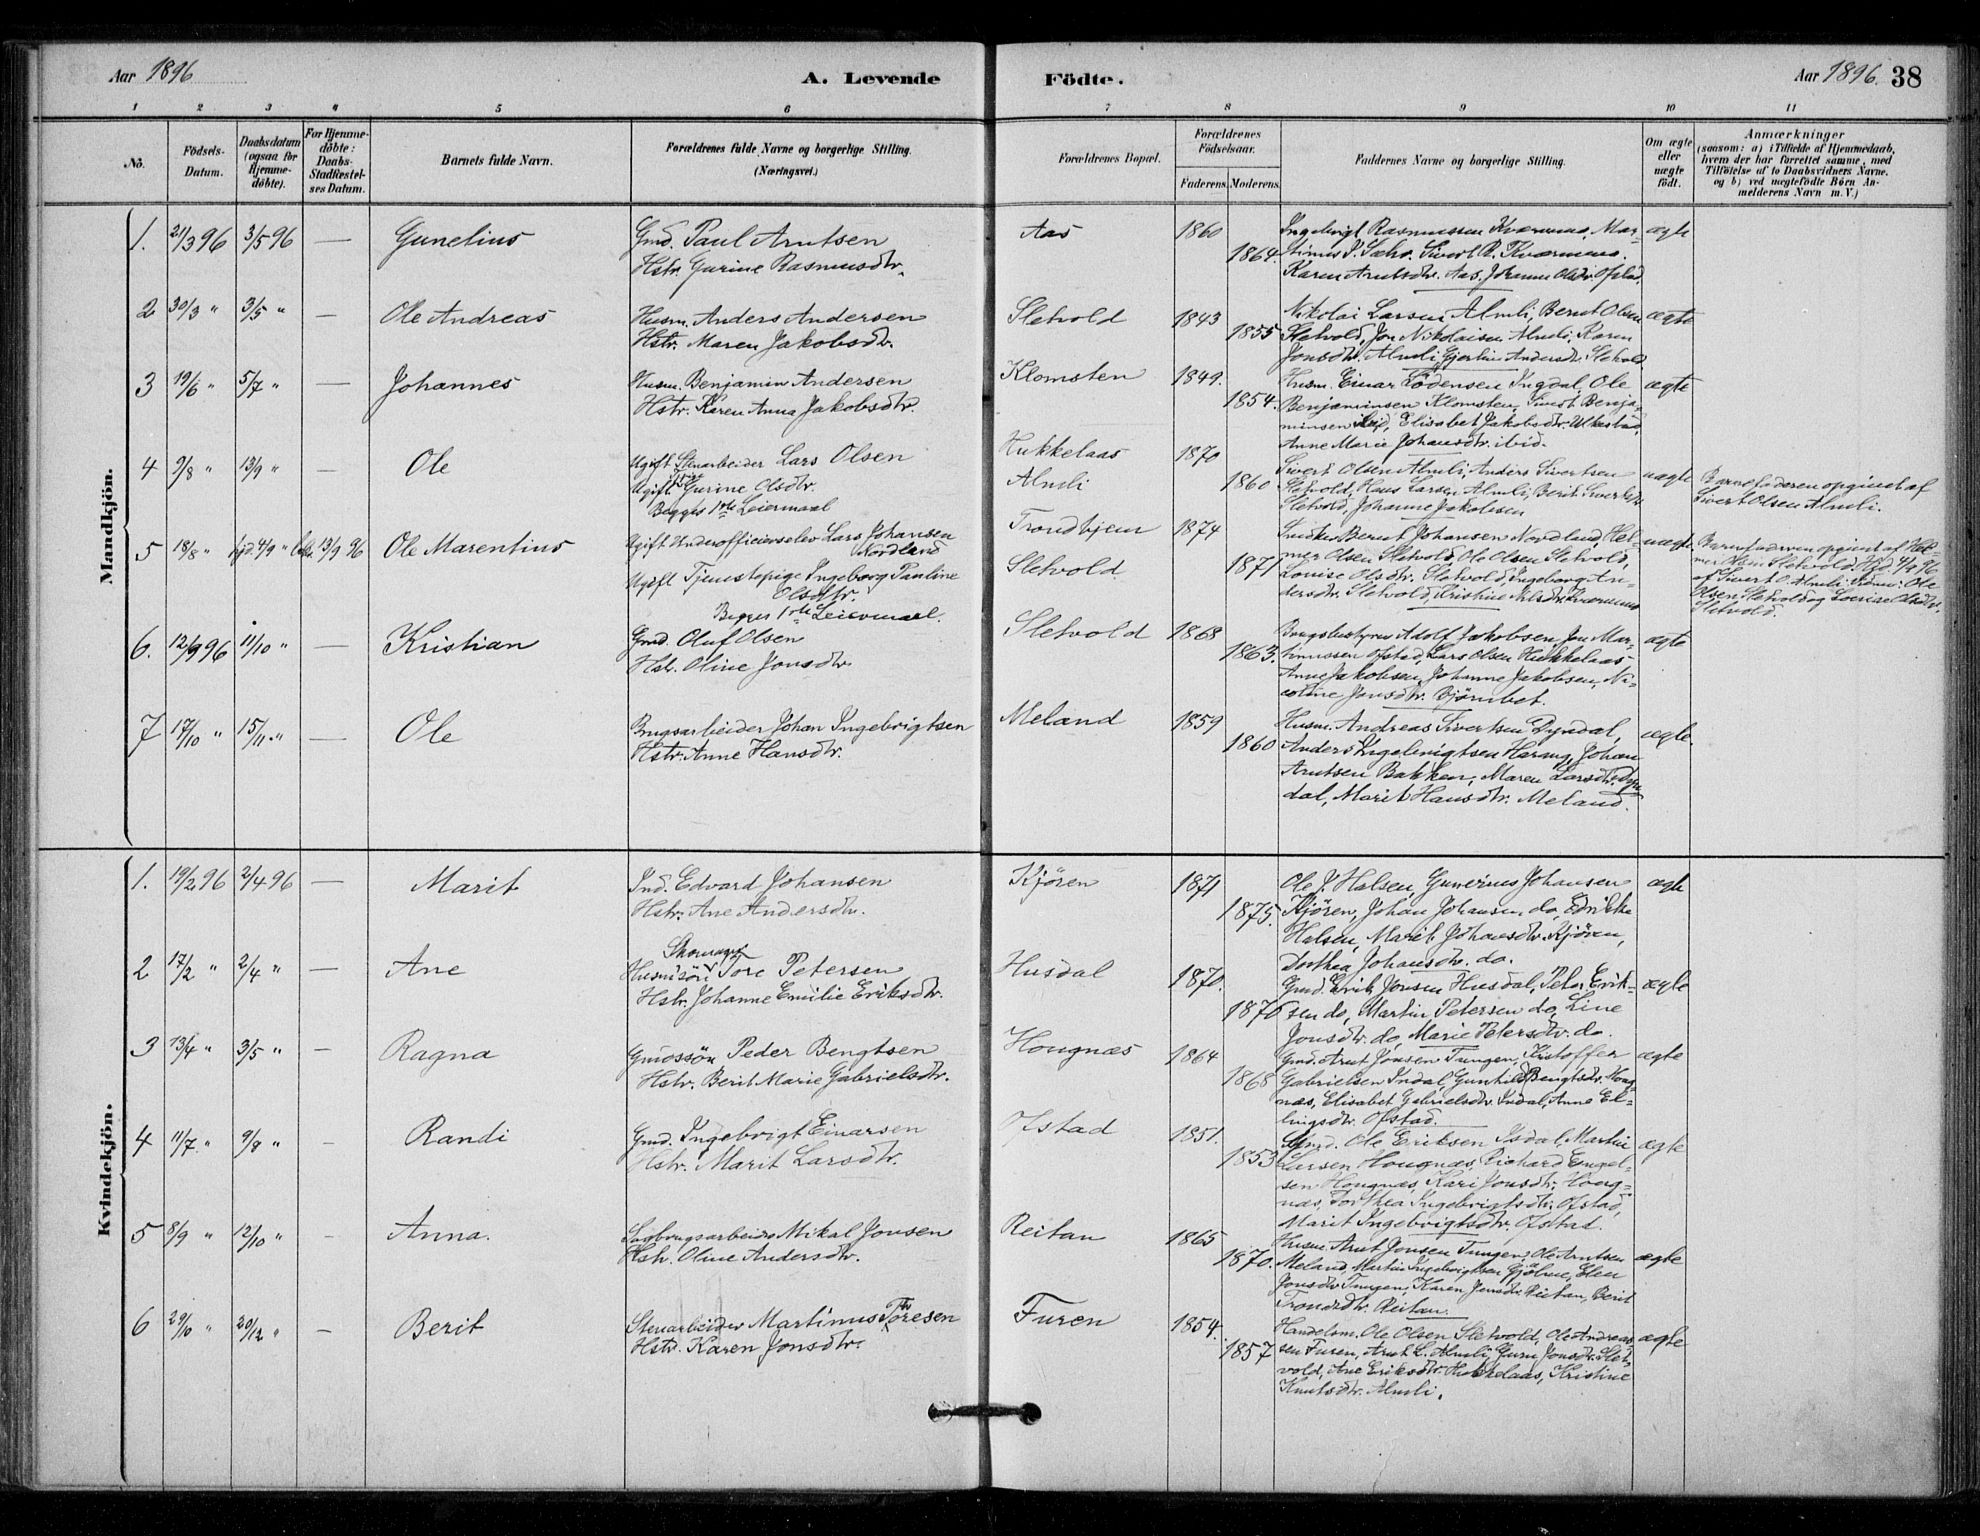 Aar 1896
A. Levende Födte.
Aar 1896. 38
1 2 3 4 5 6 7 8 9 10 11
Nö.
Födsels-Datum.
Daabsdatum (ogsaa for Hjemme-döbte).
For Hjemme-döbte: Daabs-Stadfæstel-ses Datum.
Barnets fulde Navn.
Forældrenes fulde Navne og borgerlige Stilling. (Næringsvei.)
Forældrenes Bopæl.
Forældrenes Födselsaar.
Faderens. Moderens.
Faddernes Navne og borgerlige Stilling.
Om ægte eller uægte födt.
Anmærkninger
(saasom: a) i Tilfælde af Hjemmedaab, hvem der har forrettet samme, med Tilföielse af to Daabsvidners Navne. og b) ved uægtefödte Börn An-melderens Navn m. V.)
Mandkjön.
1. 21/3 96 3/5 96 — Gunelius
Gmd. Paul Arntsen
Hstr. Gurine Rasmusdtr.
Aas 1860 1864.
Ingebrigt Rasmussen Kværnmo, Mar-
tinus P. Sæho. Sivert R. Kværnmo.
Karen Arntsdtr. Aas. Johanna Olsdr. Ofstad.
ægte
2 30/3 " 3/5 " — Ole Andreas
Husm. Anders Andersen
Hstr. Maren Jakobsdtr.
Sletvold 1843 1855
Nikolai Larsen Almli, Bernt Olsen
Sletvold, Jon Nikolaisen Almli, Karen
Jonsdtr. Almli, Gjertine Andersdr. Sletvold
ægte
3 19/6 " 5/7 " — Johannes
Husm. Benjamin Andersen
Hstr. Karen Anna Jakobsdtr.
Klomsten 1849. 1854.
Husm. Einar Lödensen Ingdal, Ole
Benjaminsen Klomsten, Sivert Benja-
minsen ibid, Elisabet Jakobsdtr.
Anne Marie Johansdtr. ibid.
ægte
4 9/8 " 13/9 " — Ole
Ugift Stenarbeider Lars Olsen
Ugift Gurine Olsdtr.
Begges 1ste Leiermaal
Hukkelaas 1870
Almli 1860
Sivert Olsen Almli, Anders Sivertsen
Sletvold, Hans Larsen Almli, Berit
Sletvold, Johanne Jakobsen
uægte
Barnefaderen opgivet af
Sivert Olsen Almli.
5 18/8 " hjd. 4/9 " 13/9 96 Ole Marentius
Ugift Underofficierselev Lars Johansen
Nordland
Ugift Tjenestepige Ingeborg Pauline
Olsdtr.
Begges 1ste Leiermaal.
Trondhjem 1874
Sletvold 1871
Snedker Bernt Johansen Nordland, Hel-
mer Olsen Sletvold, Ole Olsen Sletvold,
Louise Olsdtr. Sletvold, Ingeborg An-
dersdtr. Sletvold, Kristine Nilsdtr. Kværnmo
uægte
Barnefaderen opgivet af Hel-
mer Olsen Sletvold. Hjd. 4/9 96
af Sivert O. Almli. Ole
Olsen Sletvold og Louise Olsdtr.
Sletvold.
6. 12/9 96 11/10 " — Kristian
Gmd. Oluf Olsen
Hstr. Oline Jonsdtr.
Sletvold 1868 1863.
Brugsbestyrer Adolf Jakobsen, Jon Mar-
tinussen Ofstad, Lars Olsen Hukkelaas
Anne Jakobsen, Johanne Jakobsen, Ni-
coline Jonsdtr.
ægte
7 17/10 " 15/11 " — Ole
Brugsarbeider Johan Ingebrigtsen
Hstr. Anne Hansdtr.
Meland 1859 1860
Husm. Andreas Sivertsen Dyrdal,
Anders Ingebrigtsen Harang, Johan
Arntsen Bakken, Maren Larsdtr. Dyr-
dal, Marit Hansdtr. Meland.
ægte.
Kvindekjön.
1. 19/2 96 2/4 96 — Marit
Ind. Edvard Johansen
Hstr. Ane Andersdtr.
Kjören 1871 1875.
Ole J. Halsen, Gunerius Johansen
Kjören, Johan Johansen do,
Halsen, Marit Johansdtr. Kjören,
Dorthea Johansdtr. do.
ægte
2 17/2 " 2/4 " — Ane
Skomager
Husm.sön Tore Petersen
Hstr. Johanne Emilie Eriksdtr.
Husdal 1870. 1876
Gmd. Erik Jonsen Husdal, Peter Erik-
sen do, Martin Petersen do, Line
Jonsdtr. do, Marie Petersdtr. do.
ægte
3 13/4 " 3/5 " — Ragna
Gmdssön Peder Bengtsen
Hstr. Berit Marie Gabrielsdtr.
Hougnæs 1864 1868
Gmd. Arnt Jonsen Tungen, Kristoffer
Gabrielsen Indal, Gunhild Bengtsdtr. Houg-
næs, Elisabet Gabrielsdtr. Indal, Anne El-
lingsdtr. Ofstad.
ægte
4 11/7. " 9/8 " — Randi
Gmd. Ingebrigt Einarsen
Hstr. Marit Larsdtr.
Ofstad 1851. 1853
Gmd. Ole Eriksen Isdal, Martin
Larsen Hougnæs, Richard Engel-
sen Hougnæs, Kari Jonsdtr. Houg-
næs, Dorthea Ingebrigtsdtr. Ofstad,
Marit Ingebrigtsdtr. Ofstad.
ægte
5 8/9 " 12/10 " — Anna.
Sagbrugsarbeider Mikal Jonsen
Hstr. Oline Andersdtr.
Reitan 1865 1870.
Husm. Arnt Jonsen Tungen, Ole Arntsen
Meland, Martin Ingebrigtsen Gjölme, Elen
Jonsdtr Tungen, Karen Jonsdtr. Reitan, Berit
Trondsdtr. Reitan.
ægte
6 29/10 " 20/12 " — Berit
Stenarbeider Martinus Toresen
Hstr. Karen Jonsdtr.
Furen 1854. 1857
Handelsm. Ole Olsen Sletvold, Ole Andreas-
sen Furen, Arnt L. Almli, Guru Jonsdr. Slet-
vold, Ane Eriksdtr. Hukkelaas, Kristine
Knutsdtr. Almli.
ægte